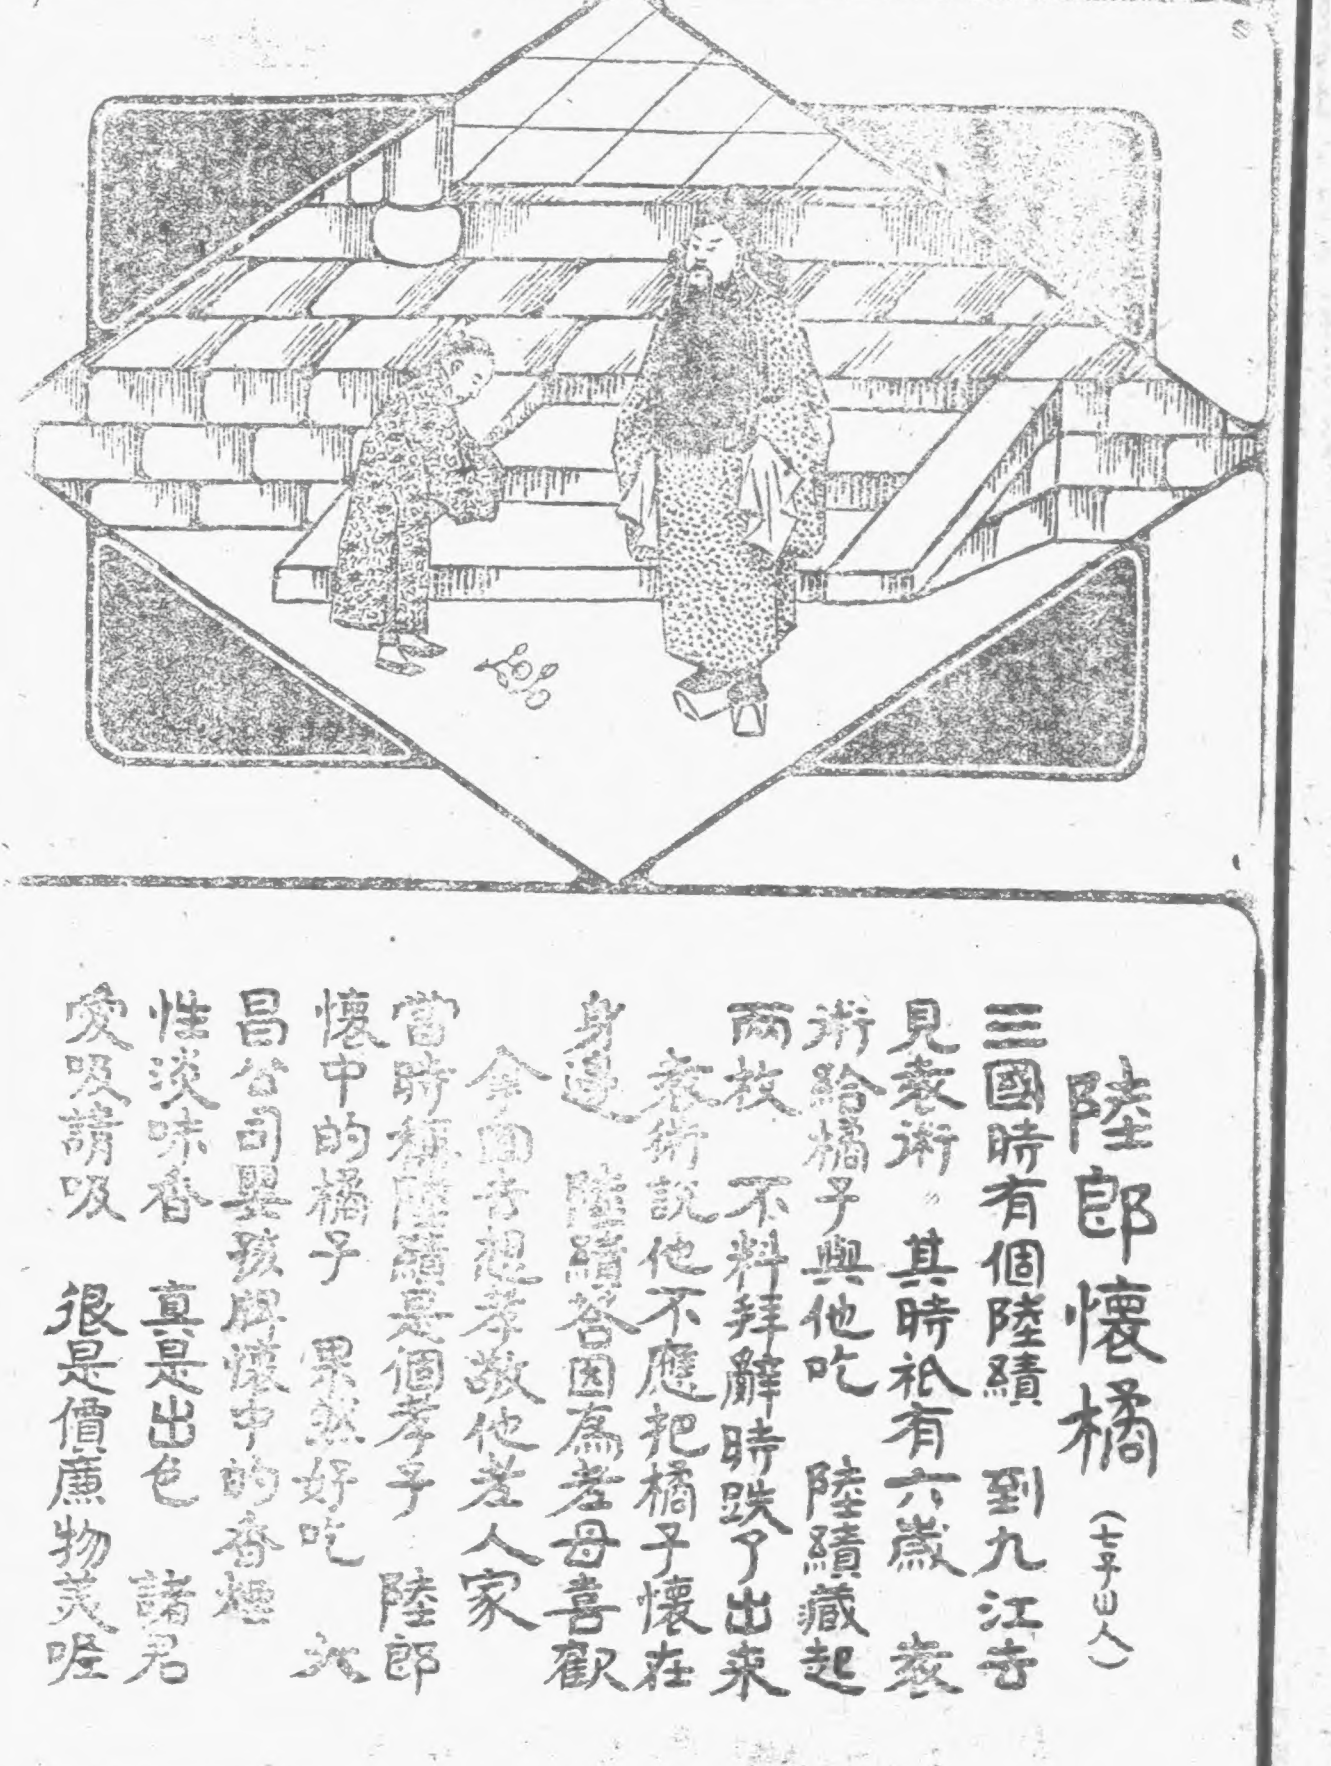 陸郎懷橘（七子山人）
三國時有個陸績　到九江去
見袁術。其時祇有六歲　袁
術給橘子與他吃　陸績藏起
兩枚　不料拜辭時跌了出來
袁術說他不應把橘子懷在
身邊　陸績答因為老母喜歡
今回去想孝敬他老人家
當時稱陸績是個孝子　陸郎
懷中的橘子　果然好吃　大
昌公司嬰孩牌懷中的香煙
性淡味香　真是出色　諸君
愛吸請吸　很是價廉物美喔